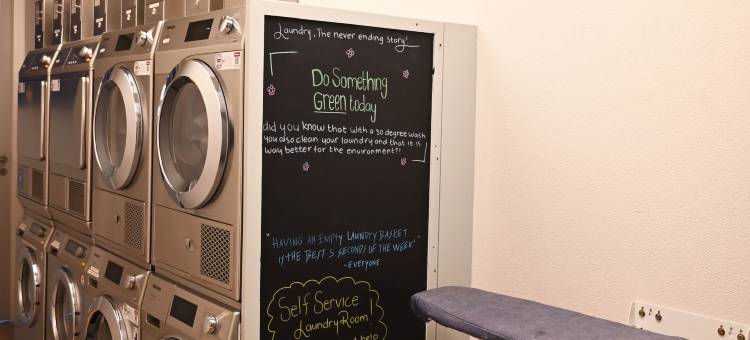 Laundry. The never ending story!
Do Something
GREEN today
did you know that with a 30 degree wash
you also clean your laundry and that it is
way better for the environment?!
"HAVING AN EMPTY LAUNDRY BASKET
IS THE BEST 5 SECONDS OF THE WEEK"
-EVERYONE
Self Service
Laundry Room!